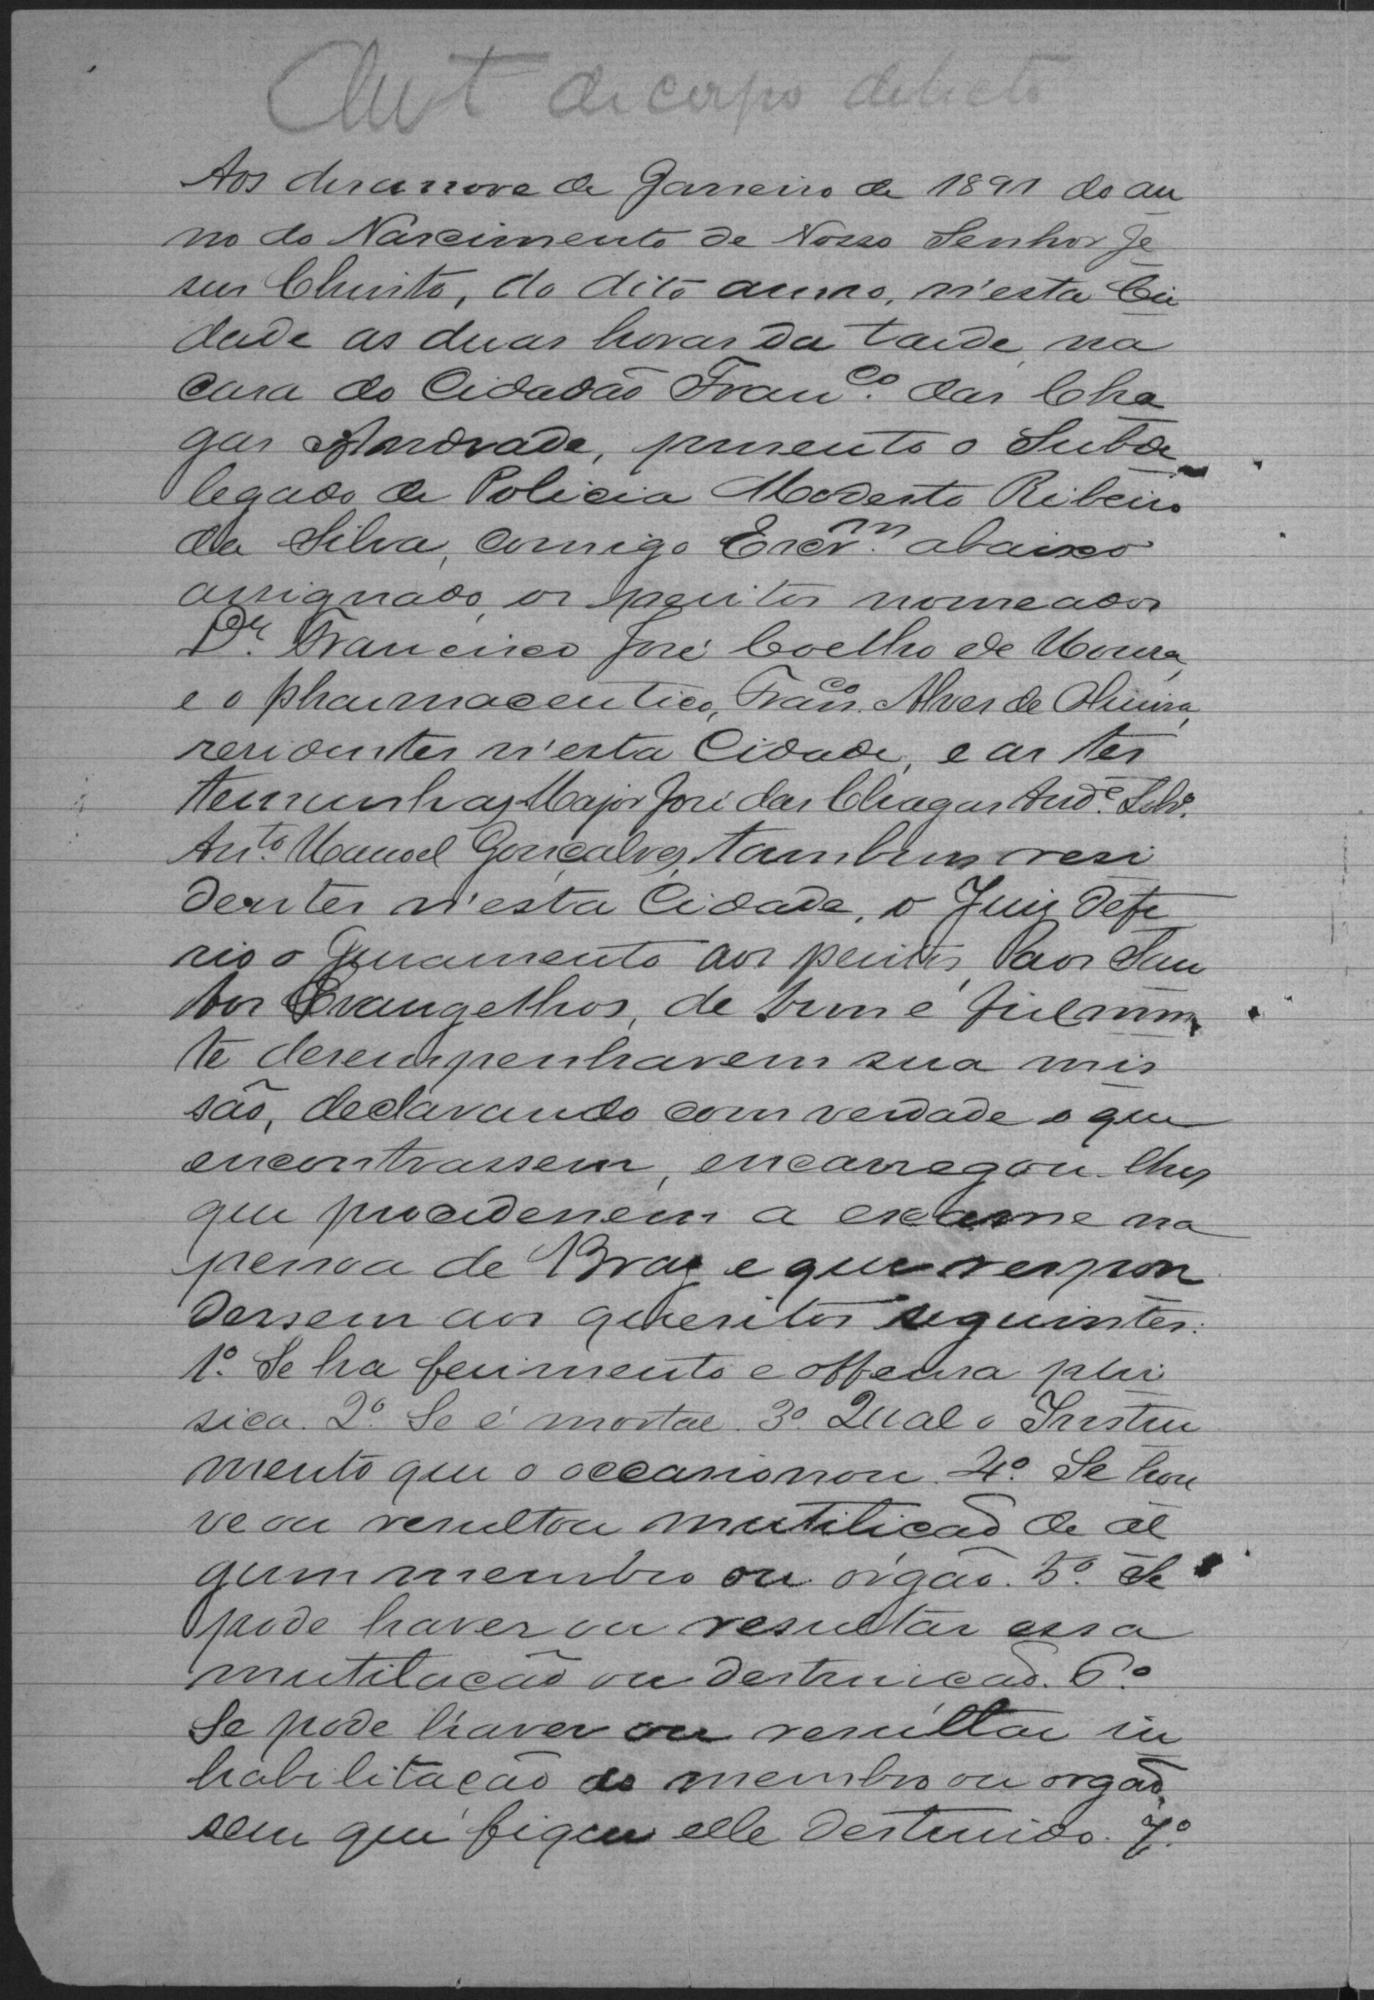 Aut de corpo delicto
Aos desanove de Janeiro de 1891 do an
no do Nascimento de Nosso Senhor Je
sus Christo, do dito anno, n'esta Ci
dade as duas horas da tarde, na
casa do Cidadão Franco. das Cha
gas Andrade, presento o Subde
legado de Policia Modesto Ribeiro
da Silva, comigo Escrm. abaixo
assignado, os peritos nomeados
Dr. Francisco José Coelho de Moura,
e o pharmaceutico, Franco. Alves de Oliveira,
residentes n'esta Cidade, e as tes
temunhas Major José das Chagas Ande. Sobro.
Anto. Manoel Gonçalves, tambem resi
dentes n'esta Cidade, o Juiz defe
rio o Juramento aos peritos, aos San
tos Evangelhos, de bem e fielmen
te desempenharem sua mis
são, declarando com verdade o que
encontrassem, encarregou-lhes
que procedessem a exame na
pessoa de Braz e que respon
dessem aos quesitos seguintes:
1º. Se ha ferimento e offensa phi
sica. 2º. Se é mortal. 3º. Qual o Instru
mento que o occasionou. 4º. Se hou
ve ou resultou mutilicão de al
gum membro ou orgão. 5º. Se
pode haver ou resultar essa
mutilacão ou destruicão. 6º.
Se pode haver ou resultar in
habilitacão do membro ou orgão,
sem que fique elle destruido. 7º.